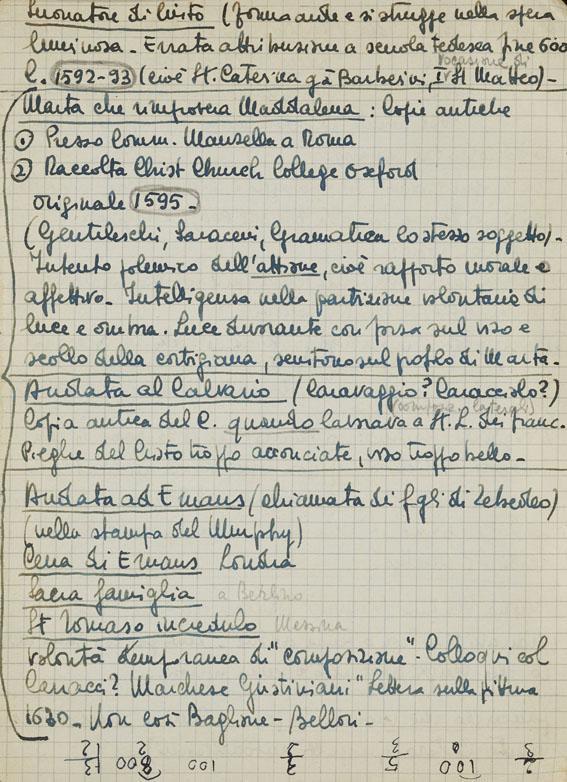 Suonatore di liuto (forma ande e si strugge nella sfera
luminosa - Errata attribuzione a scuola tedesca fine 600
C. 1592-93 (cioè St. Caterina già Barberini, I St Matteo) -
vocazione di
Marta che rimprovera Maddalena : Copie antiche
① Presso Comm. Manzella a Roma
② Raccolta Christ Church College Oxford
originale 1595 -
(Gentileschi, Saraceni, Gramatica lo stesso soggetto) -
Intento polemico dell'attione, cioè rapporto morale e
affettivo - Intelligenza nella partizione volontaria di
luce e ombra. Luce divorante con forza sul viso e
scollo della cortigiana, semitono sul profilo di Marta -
Andata al Calvario (Caravaggio? Caracciolo?)
Copia antica del C. quando lavorava a St. L. dei franc.
Pieghe del Cristo troppo acconciate, viso troppo bello -
Andata ad Emaus (chiamata di figli di Zebedeo)
(nella stampa del Murphy)
Cena di Emaus Londra
Sacra famiglia a Berlino
St Tomaso incredulo Messina
volontà temporanea di "composizione" - Colloqui col
Carracci? Marchese Giustiniani "Lettera sulla pittura
1630 - Non così Baglione - Bellori -